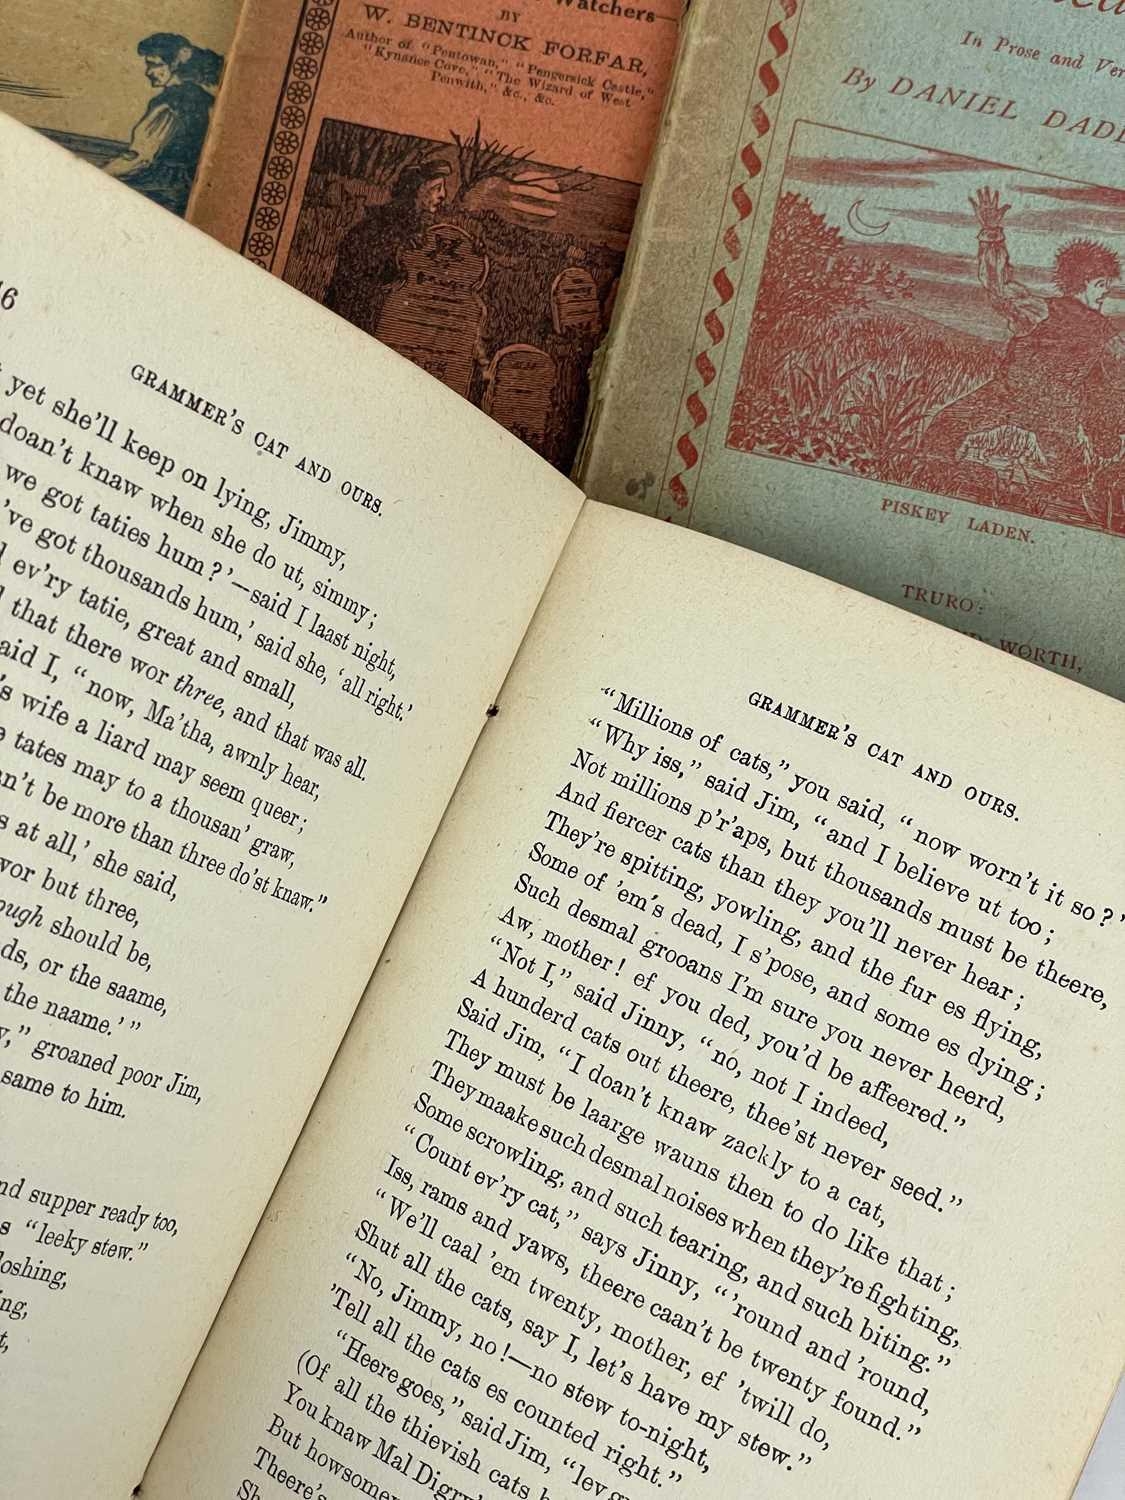 Watchers—
BY
W. BENTINCK FORFAR,
Author of "Pentowan," "Pengersick Castle,"
"Kynance Cove," "The Wizard of West
Penwith," &c., &c.
In Prose and Ver
By DANIEL
PISKEY LADEN.
TRURO:
WORTH,
GRAMMER'S CAT AND OURS.
yet she'll keep on lying, Jimmy,
doan't knaw when she do ut, simmy;
we got taties hum?'—said I laast night,
've got thousands hum,' said she, 'all right.'
ev'ry tatie, great and small,
that there wor three, and that was all.
said I, "now, Ma'tha, awnly hear,
's wife a liard may seem queer;
tates may to a thousan' graw,
an't be more than three do'st knaw."
at all,' she said,
wor but three,
should be,
or the saame,
the naame.'"
groaned poor Jim,
same to him.
supper ready too,
"leeky stew."
GRAMMER'S CAT AND OURS.
"Millions of cats," you said, "now worn't it so?"
"Why iss," said Jim, "and I believe ut too;
Not millions p'r'aps, but thousands must be theere,
And fiercer cats than they you'll never hear;
They're spitting, yowling, and the fur es flying,
Some of 'em's dead, I s'pose, and some es dying;
Such desmal grooans I'm sure you never heerd,
Aw, mother! ef you ded, you'd be affeered."
"Not I," said Jinny, "no, not I indeed,
A hunderd cats out theere, thee'st never seed."
Said Jim, "I doan't knaw zackly to a cat,
They must be laarge wauns then to do like that;
They maake such desmal noises when they're fighting,
Some scrowling, and such tearing, and such biting."
"Count ev'ry cat," says Jinny, "'round and 'round,
Iss, rams and yaws, theere caan't be twenty found."
"We'll caal 'em twenty, mother, ef 'twill do,
Shut all the cats, say I, let's have my stew."
"No, Jimmy, no!—no stew to-night,
'Tell all the cats es counted right."
"Heere goes," said Jim, "lev
(Of all the thievish cats
You knaw Mal Digry's
But howsomer
Theere's